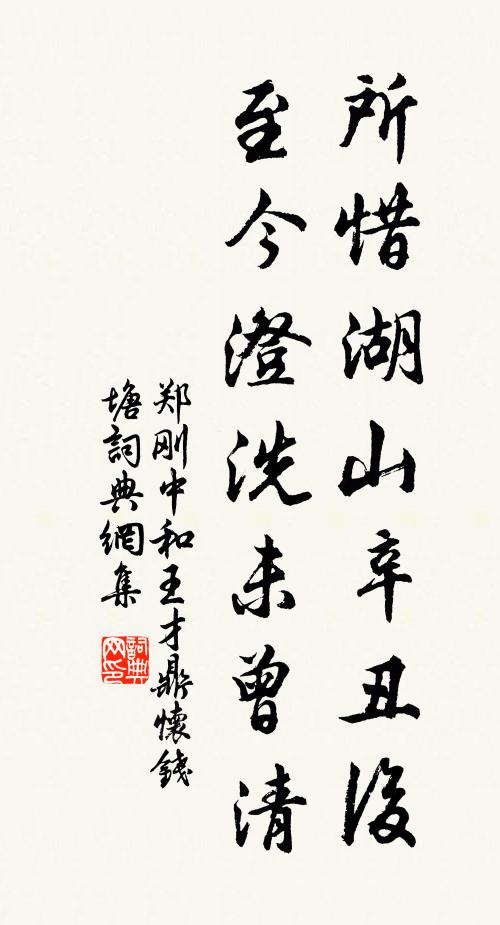 所惜湖山辛丑後
至今澄洗未曾清
郑刚中和王才鼎懷錢
塘詞典網集
詞典
网印